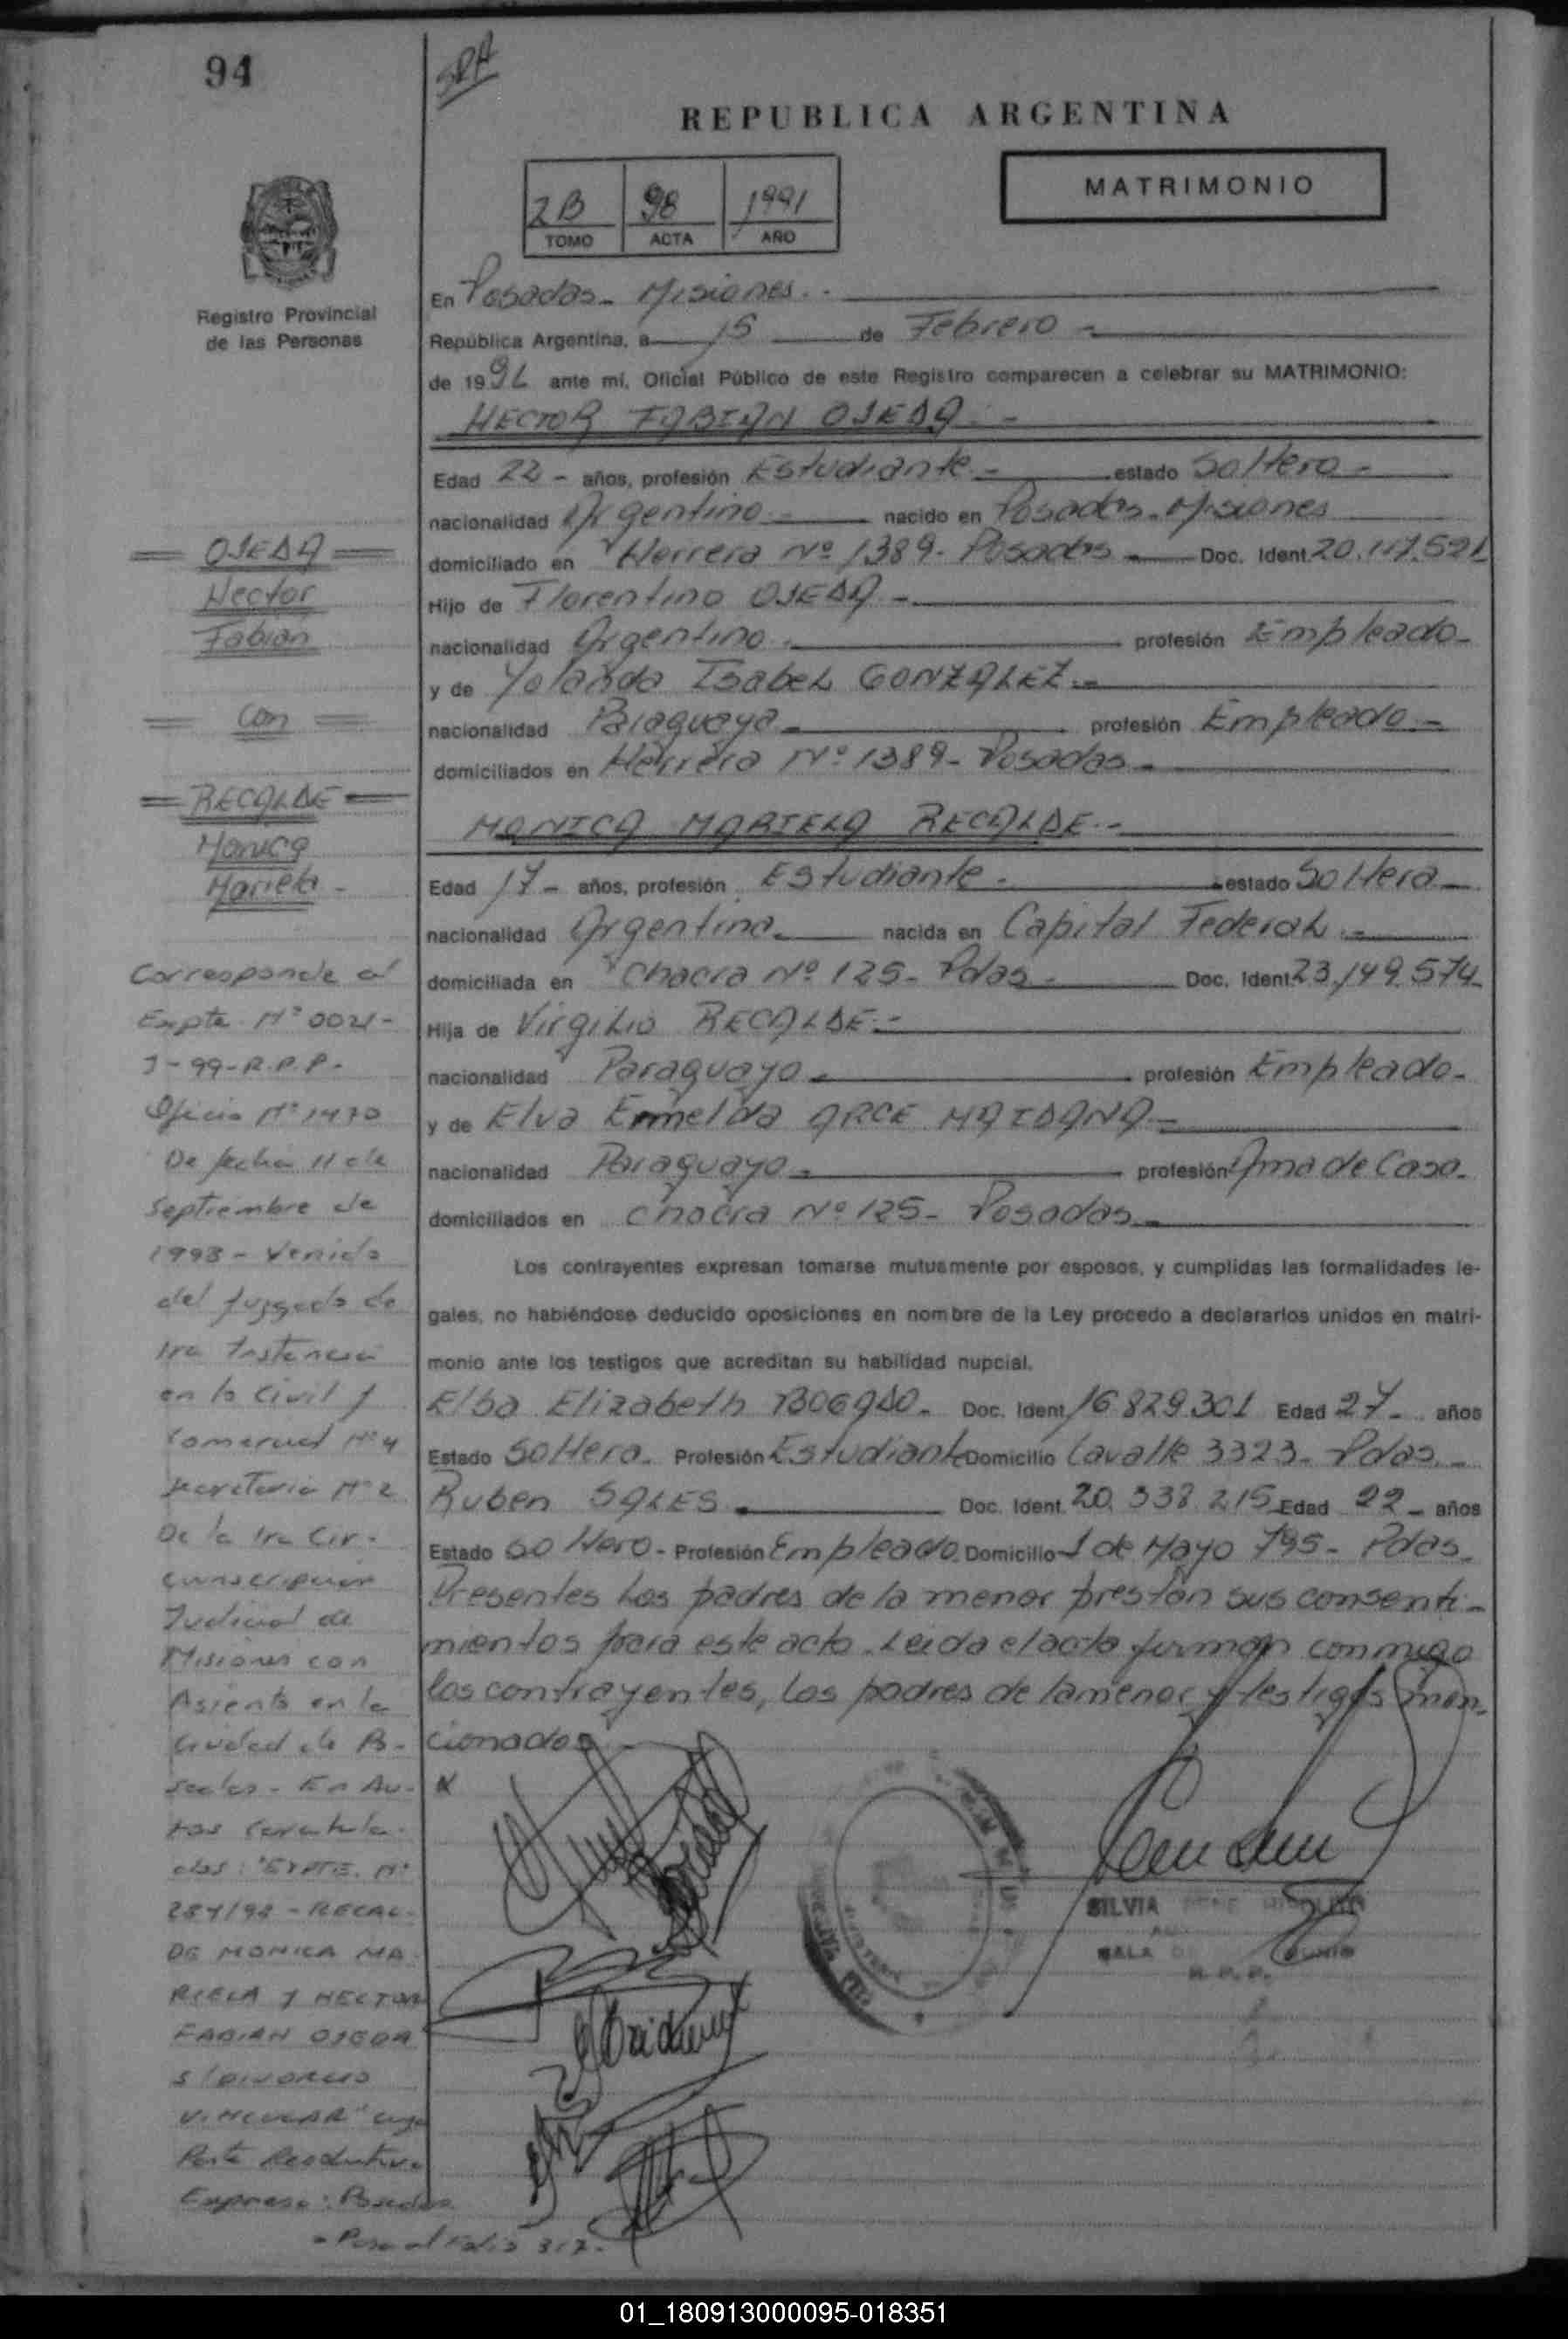 94
SRA
REPUBLICA ARGENTINA
MATRIMONIO
2B 98 1991
TOMO ACTA AÑO
Registro Provincial
de las Personas
En Posadas - Misiones. -
República Argentina, a 15 de Febrero -
de 1991 ante mí, Oficial Público de este Registro comparecen a celebrar su MATRIMONIO:
HECTOR FABIAN OJEDA. -
Edad 22 - años, profesión Estudiante - estado Soltero -
nacionalidad Argentino - nacido en Posadas - Misiones
domiciliado en Herrera Nº 1389 - Posadas - Doc. Ident. 20.117.521
Hijo de Florentino OJEDA. -
nacionalidad Argentino. profesión Empleado -
y de Yolanda Isabel GONZALEZ. -
nacionalidad Paraguaya - profesión Empleado. -
domiciliados en Herrera Nº 1389 - Posadas -
MONICA MARIELA RECALDE. -
Edad 17 - años, profesión Estudiante - estado Soltera -
nacionalidad Argentina. nacida en Capital Federal. -
domiciliada en Chacra Nº 125 - Pdas - Doc. Ident. 23.149.574
Hija de Virgilio RECALDE. -
nacionalidad Paraguayo - profesión Empleado -
y de Elva Ermelda ARCE MAIDANA. -
nacionalidad Paraguaya - profesión Ama de Casa -
domiciliados en Chacra Nº 125 - Posadas -
Los contrayentes expresan tomarse mutuamente por esposos, y cumplidas las formalidades le-
gales, no habiéndose deducido oposiciones en nombre de la Ley procedo a declararlos unidos en matri-
monio ante los testigos que acreditan su habilidad nupcial.
Elba Elizabeth BOGADO - Doc. Ident. 16.829.301 Edad 27 - años
Estado Soltera - Profesión Estudiante Domicilio Lavalle 3323 - Pdas -
Ruben SALES - Doc. Ident. 20.338.215 Edad 22 - años
Estado Soltero - Profesión Empleado Domicilio 1 de Mayo 795 - Pdas -
Presentes los padres de la menor prestan sus consenti-
mientos para este acto. Leida el acta firman conmigo
los contrayentes, los padres de la menor y testigos men-
cionados -
SILVIA
SALA
R.P.P.
OJEDA
Hector
Fabian
con
RECALDE
Monica
Mariela -
Corresponde al
Expte. Nº 0021-
J-99-R.P.P.-
Oficio Nº 1470
De fecha 11 de
Septiembre de
1998 - Venido
del Juzgado de
1ra Instancia
en lo Civil y
Comercial Nº 4
Secretaria Nº 2
De la 1ra Cir-
cunscripcion
Judicial de
Misiones con
Asiento en la
Ciudad de Po-
sadas - En Au-
tos caratula-
dos: "EXPTE. Nº
284/98 - RECAL-
DE MONICA MA-
RIELA Y HECTOR
FABIAN OJEDA
S/DIVORCIO
VINCULAR" cuya
Parte Resolutiva
Expresa: Posadas
- Pasa al Folio 317 -
01_180913000095-018351